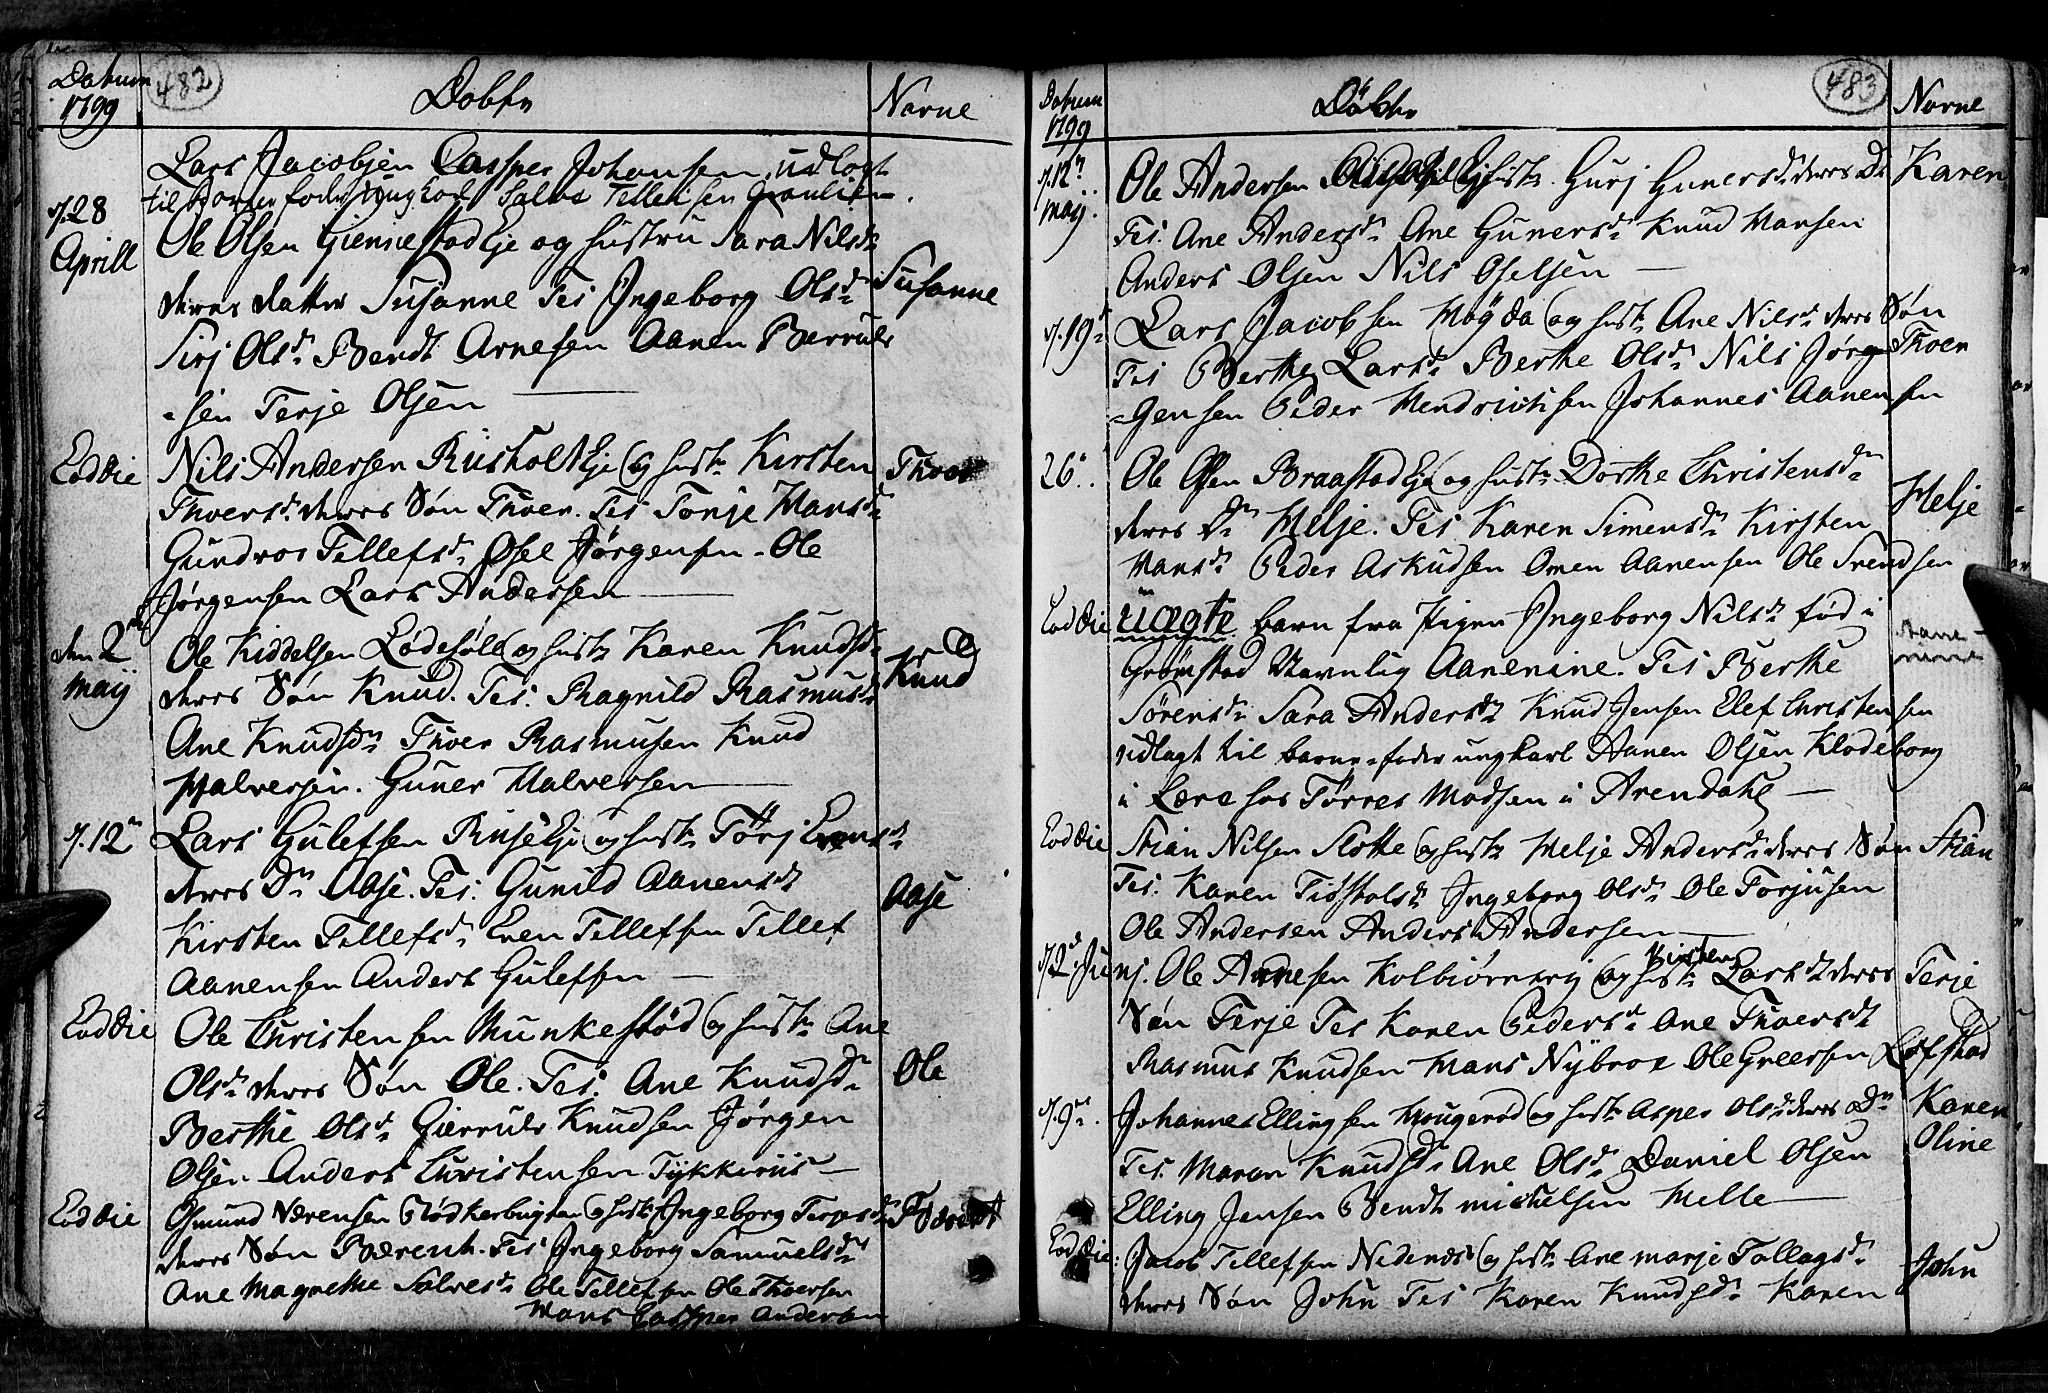 Datum
1799
482
Dobte
Navne
Lars Jacobsen Casper Johansen, udlagt
til barnefader ungkarl Salve Tellefsen
d. 28
Aprill
Ole Olsen Giennestad Eje og hustru Sara Nilsdr
deres datter Susanne Tes Ingeborg Olsdr
Susanne
Sirj Olsdr Bendt Arnesen Aanen Berruls
-sen Terje Olsen
Eod Die
Nils Andersen Rusholt Eje og hustr Kirsten
Thoer
Thoersdr deres Søn Thoer. Tes Tonje Hansdr
Gundvor Tellefsdr Osel Jørgensen - Ole
Jørgensen Lars Andersen
den 2
maij
Ole Kiddelsen Lødesøll og hustr Karen Knudsdr
Knud
deres Søn Knud. Tes. Ragnild Rasmusdr
Ane Knudsdr Thoer Rasmusen Knud
Halversen. Guner Halversen
d. 12te
Lars Gulefsen Eje og hustr Tørj Evensdr
deres Dr Aase. Tes. Gunild Aanensdr
Aase
Kirsten Tellefsdr Even Tellefsen Tellef
Aanensen Anders Gulefsen
Eod Die
Ole Christensen Munkestød og hustr Ane
Ole
Olsdr deres Søn Ole. Tes. Ane Knudsdr
Berthe Olsdr Gierruls Knudsen Jørgen
Olsen. Anders Christensen Tykkeriis
Eod Die
Osmund Værensen Rødkerbugten og hustr Ingeborg Terjesdr
deres Søn Bærent. Tes Ingeborg Samuelsdr
Ane Magrethe Salvesdr Ole Tellefsen Ole Thoersen
Hans Casper Andersen
Datum
1799
Døbte
483
Navne
d. 12te
maij.
Ole Andersen Eje og hustr. Gurj Gunersdr deres Dr
Karen
Tes. Ane Andersdr Ane Gunersdr Knud Hansen
Anders Olsen Nils Oselsen
d. 19de
Lars Jacobsen Høgda og hustr Ane Nilsdr deres Søn
Thoer
Tes Berthe Larsdr Berthe Olsdr Nils Jørg-
-gensen Peder Hendrichsen Johannes Aanensen
26.
Ole Olsen Braastad Eje og hustr Dorthe Christensdr
Helje
deres Dr Helje. Tes Karen Simensdr Kirsten
Hansdr Peder Askudsen Omen Aanensen Ole Svendsen
Eod Die
uægte barn fra Pigen Ingeborg Nilsdr fød i
Grømstad Navnlig Aanenine. Tes Berthe
Aane-
nine
Sørensdr Sara Andersdr Knud Jensen Elef Christensen
udlagt til barne-fader ungkarl Aanen Olsen Klodeborg
i Lære hos Tørres Madsen i Arendahl
Eod Die
Stian Nilsen Slotte og hustr Helje Andersdr deres Søn
Stian
Tes. Karen Tiøstolsdr Ingeborg Olsdr Ole Torjusen
Ole Andersen Anders Andersen
d. 2d Junj. Ole Arnesen Kolbiørnsvig og hustr Kirsten Larsdr deres
Terje
Søn Terje Tes Karen Pedersdr Ane Thoersdr
Rasmus Knudsen Hans Nybroe Ole Greersen Løfstad
d. 9de.
Johannes Ellingsen Hougerød og hustr Asper Olsdr deres Dr
Karen
Oline
Tes. Maren Knudsdr Ane Olsdr Daniel Olsen
Elling Jensen Bendt michelsen Helle
Eod Die:
Jacob Tellefsen Nedenæs og hustr Ane marje Tallagsdr
John
deres Søn John Tes Karen Knudsdr Karen